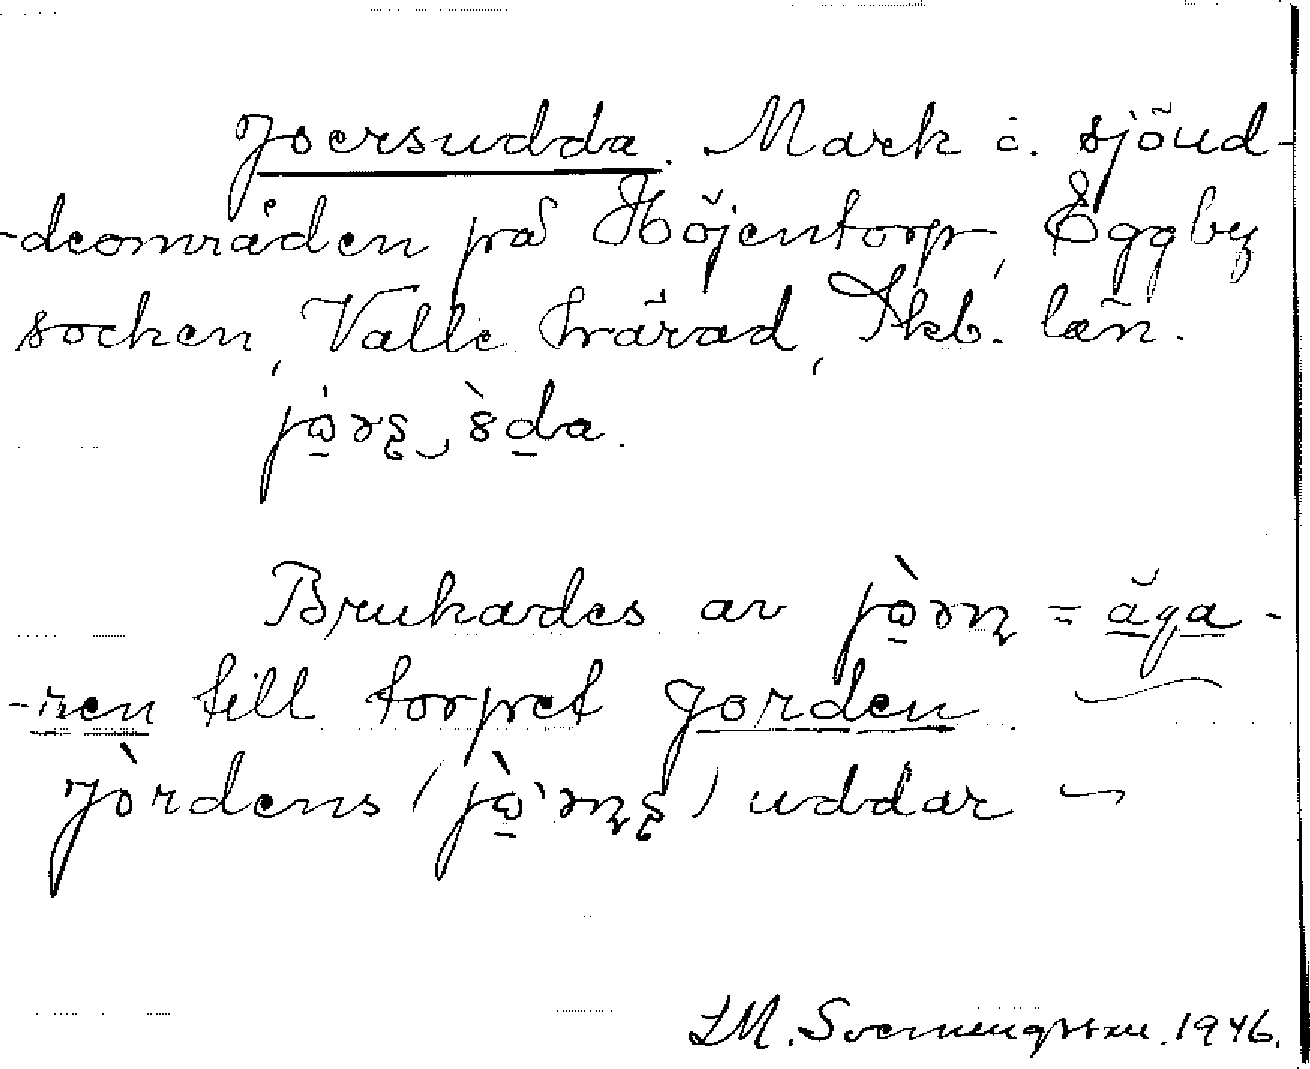 Joersudda. Mark i. sjöud-
-deområden på Höjentorp, Eggby
socken, Valle härad, Skb. län.
Brukades av = äga-
-ren till torpet Jorden.
Jordens ( ) uddar
LM. Svenungsson. 1946.